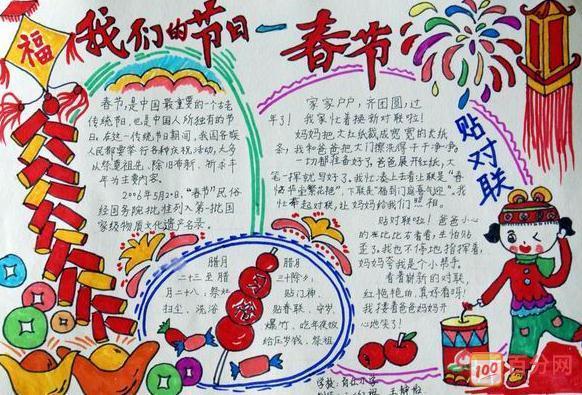 福
我们的节日—春节
春节,是中国最重要的一个古老
传统节,也是中国人所独有的节
日。在这一传统节日期间,我国各族
人民都要举行各种庆祝活动,大多
以祭意祖、除旧布新、祈求丰
年为主要内容。
2006年5月20,"春节"民俗
经国务院批准列入第一批国
家级物质文化遗产名录。
腊月
二十三至腊
月二十八:祭灶
扫尘、洗浴
腊月
三十除夕:
贴门神、
贴春联、守岁、
爆竹、吃年夜饭
给压岁钱、祭祖
家家户户,齐团圆,过
年了!我家忙着换新对联啦!
妈妈把大红纸裁成宽宽的大纸
条,我和爸爸把大门擦洗得干干净净。
一切都准备好了,爸爸展开红纸,大
笔一挥就写好了。我忙凑上去看上联是"春
临福到门庭喜气迎"。我
忙举起对联,让妈妈给我们照相。
贴对联啦!爸爸小心
的
至了。我也不停地指挥着,
妈妈夸我是个小帮手。
看着崭新的对联,
红艳艳的,真好看呀!
我搂着爸爸妈妈开
心地笑了!
贴对联
学校:
百分网
100